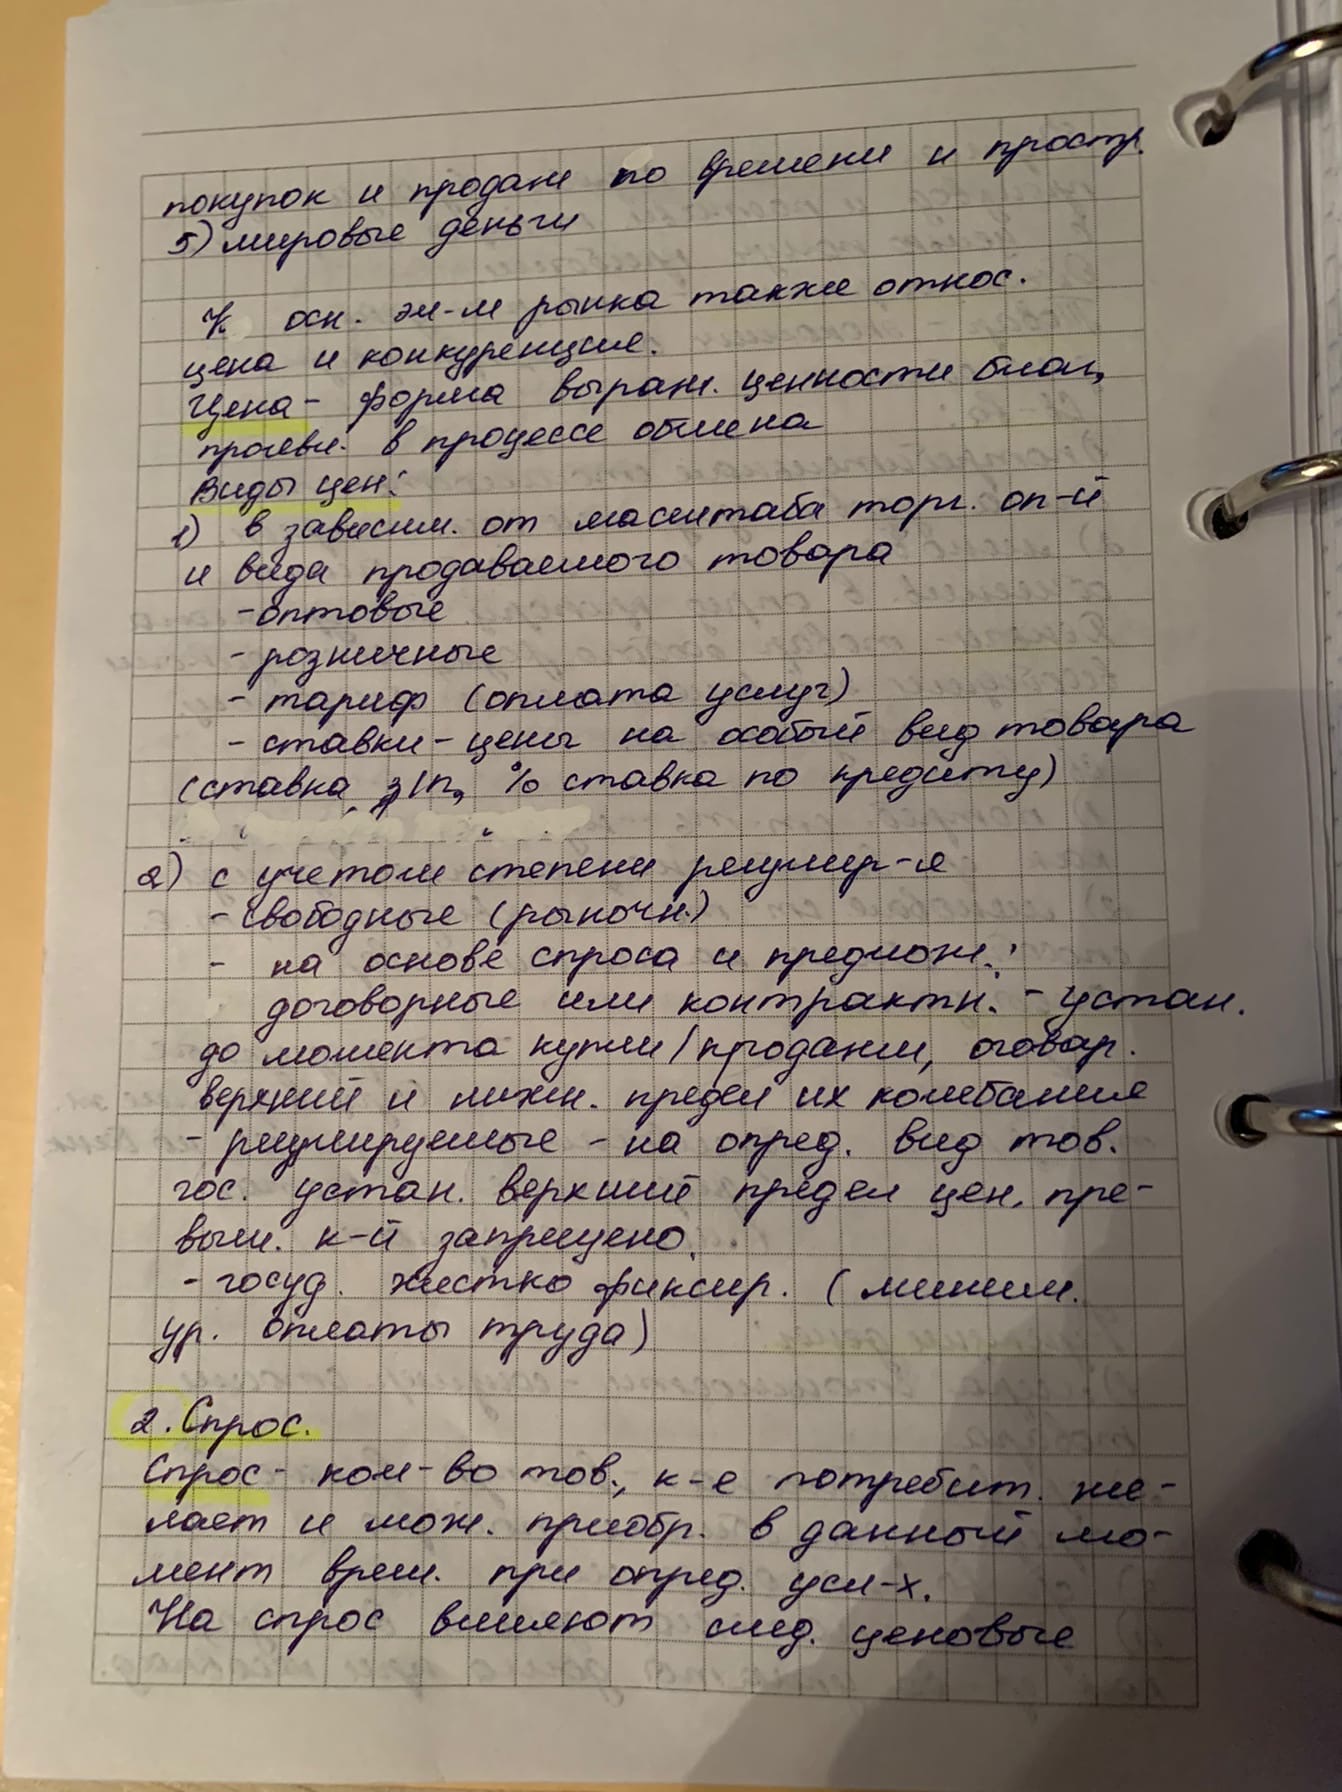 покупок и продаж по времени и простр.
5) мировые деньги
К осн. эл-м рынка также относ.
цена и конкуренция.
Цена - форма выраж. ценности благ,
проявл. в процессе обмена
Виды цен:
1) в зависим. от масштаба торг. оп-й
и вида продаваемого товара
- оптовые
- розничные
- тариф (оплата услуг)
- ставки - цены на особый вид товара
(ставка з/п, % ставка по кредиту)
2) с учетом степени регулир-я
- свободные (рыночн.)
- на основе спроса и предлож.:
договорные или контрактн. - устан.
до момента купли/продажи, оговар.
верхний и нижн. предел их колебания
- регулируемые - на опред. вид тов.
гос. устан. верхний предел цен, пре-
выш. к-й запрещено.
- госуд. жестко фиксир. (миним.
ур. оплаты труда)
2. Спрос.
Спрос - кол-во тов., к-е потребит. же-
лает и мож. приобр. в данный мо-
мент врем. при опред. усл-х.
На спрос влияют след. ценовые